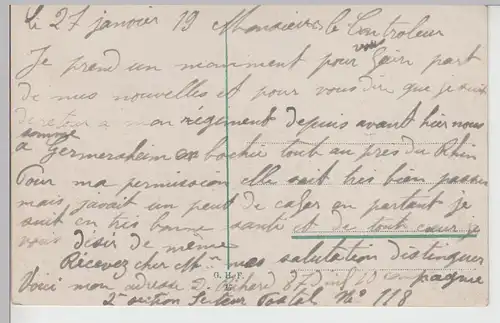 Le 27 janvier 19 Monsieur le Controleur
Je prend un momment pour vous faire part
de mes nouvelles et pour vous dire que je suit
de retour a mon régiment depuis avant hier nous
somme
a Germersheim en bochie tout au pres du Rhin
Pour ma permission elle sait tres bien passer
mais javait un peut de cafar en partant je
suit en tres bonne santé et de tout cœur je
vous désir de même
Recevez cher Mr mes salutation distinguer
G. H. F.
Voici mon adresse 87 inf 10 compagnie
2e section Secteur Postal No 118